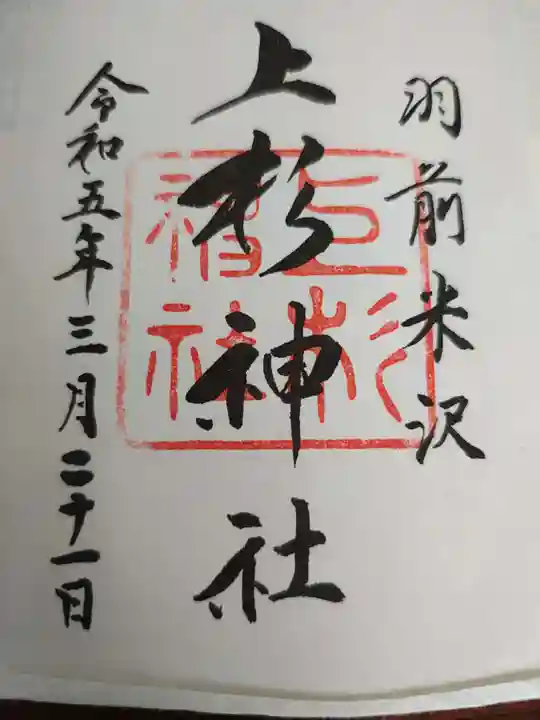 羽前米沢
上杉神社
上杉神社
令和五年三月二十一日